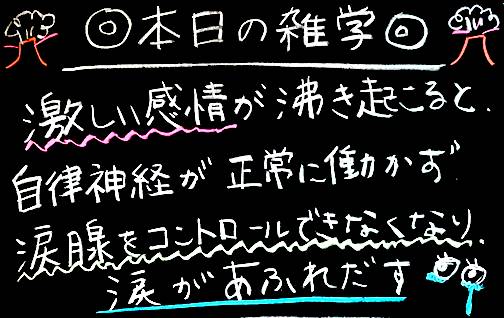 ◎本日の雑学◎
激しい感情が沸き起こると、
自律神経が正常に働かず
涙腺をコントロールできなくなり、
涙があふれだす